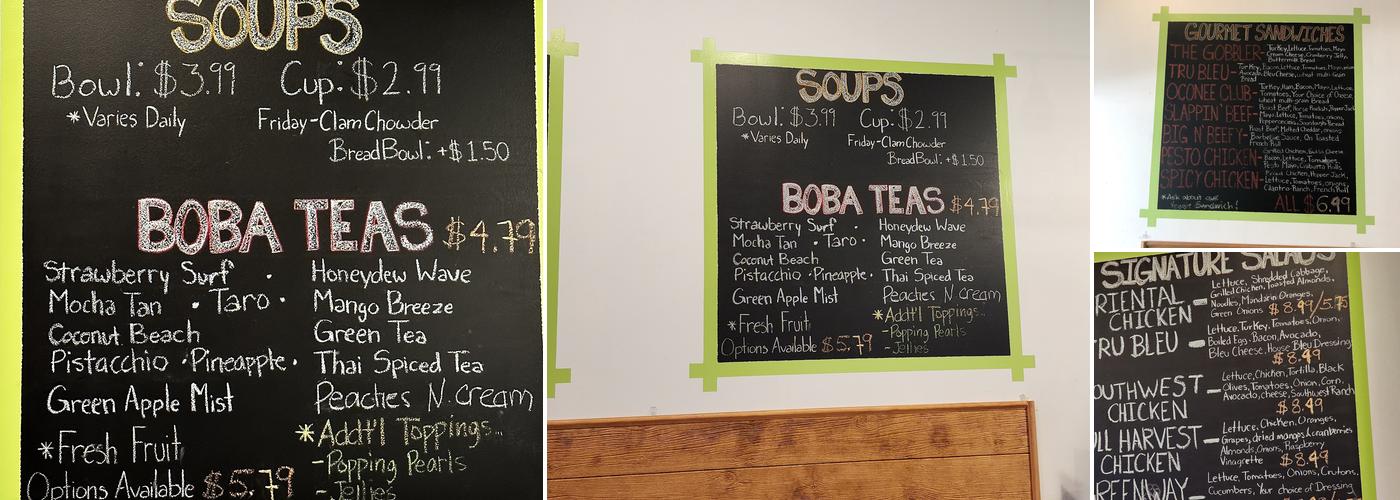 SOUPS
Bowl: $3.99 Cup: $2.99
*Varies Daily Friday-Clam Chowder
Bread Bowl: +$1.50
BOBA TEAS $4.79
Strawberry Surf · Honeydew Wave
Mocha Tan · Taro · Mango Breeze
Coconut Beach Green Tea
Pistacchio ·Pineapple· Thai Spiced Tea
Green Apple Mist Peaches N cream
*Fresh Fruit *Addt'l Toppings...
-Popping Pearls
Options Available $5.79 -Jellies
SOUPS
Bowl: $3.99 Cup: $2.99
*Varies Daily Friday-Clam Chowder
Bread Bowl: +$1.50
BOBA TEAS $4.79
Strawberry Surf · Honeydew Wave
Mocha Tan · Taro · Mango Breeze
Coconut Beach Green Tea
Pistacchio ·Pineapple· Thai Spiced Tea
Green Apple Mist Peaches N cream
*Fresh Fruit *Addt'l Toppings...
-Popping Pearls
Options Available $5.79 -Jellies
GOURMET SANDWICHES
THE GOBBLER- Turkey, Lettuce, Tomatoes, Mayo
Cream Cheese, Cranberry Jelly,
Buttermilk Bread
TRU BLEU- Turkey, Bacon, Lettuce, Tomatoes, Mayo
Avocado, Bleu Cheese, wheat multi-Grain
Bread
OCONEE CLUB- Turkey, Ham, Bacon, Mayo, Lettuce,
Tomatoes, Your Choice of Cheese,
wheat multi-grain Bread
SLAPPIN' BEEF- Roast Beef, Horse Radish, Pepper Jack
Mayo, Lettuce, Tomatoes, onions,
Pepperoncinis, Sourdough Bread
BIG N' BEEFY- Roast Beef, Melted Cheddar, onions
Barbeque Sauce, On Toasted
French Roll
PESTO CHICKEN- Grilled Chicken, Swiss Cheese
Bacon, Lettuce, Tomatoes,
Pesto Mayo, Ciabatta Rolls
SPICY CHICKEN- Fried Chicken, Pepper Jack,
Lettuce, Tomatoes, onions,
Cilantro-Ranch, French Roll
*Ask about our
Veggie Sandwich! ALL $6.49
SIGNATURE SALADS
RIENTAL CHICKEN - Lettuce, Shredded Cabbage,
Grilled Chicken, Toasted Almonds,
Noodles, Mandarin Oranges,
Green Onions $8.49/5.75
RU BLEU - Lettuce, Turkey, Tomatoes, Onion,
Boiled Egg, Bacon, Avocado,
Bleu Cheese, House Bleu Dressing
$8.49
OUTHWEST CHICKEN - Lettuce, Chicken, Tortilla, Black
Olives, Tomatoes, Onion, Corn,
Avocado, cheese, Southwest Ranch
$8.49
LL HARVEST CHICKEN - Lettuce, Chicken, Oranges,
Grapes, dried mangos & cranberries
Almonds, Onions, Raspberry
Vinagrette $8.49
REENWAY Lettuce, Tomatoes, Onions, Crutons,
Cucumbers, Your choice of Dressing